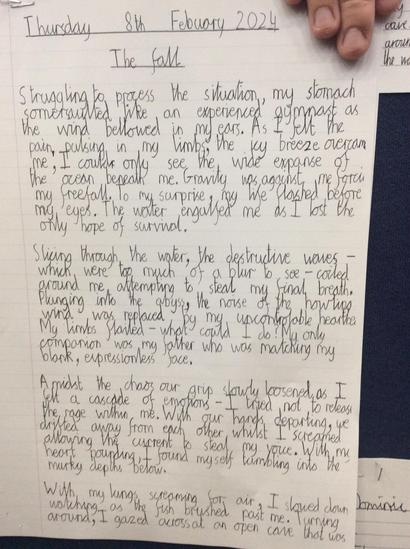 Thursday 8th Febuary 2024
The fall
Struggling to process the situation, my stomach
somersaulted like an experienced gymnast as
the wind bellowed in my ears. As I felt the
pain pulsing in my limbs, the icy breeze overcam
me, I could only see the wide expanse of
the ocean beneath me. Gravity was against me
my freefall. To my surprise, my life flashed before
my eyes. The water engulfed me as I lost the
only hope of survival.
Slicing through the water, the destructive waves -
which were too much of a blur to see - coiled
around me, attempting to steal my final breath.
Plunging into the abyss, the noise of the howling
wind was replaced by my uncontrolable
My limbs flailed - what could I do? My only
companion was my father who was matching my
blank, expressionless face.
Amidst the chaos our grip slowly loosened as I
felt a cascade of emotions - I tried not to release
the rage within me. With our hands departing, we
drifted away from each other, whilst I screamed
allowing the current to steal my voice. With my
heart pounding, I found myself tumbling into the
murky depths below.
With my lungs screaming for air, I slowed down
watching as the fish brushed past me. Turning
around, I gazed across at an open cave that was
cave
aroun
the wa
Dominic